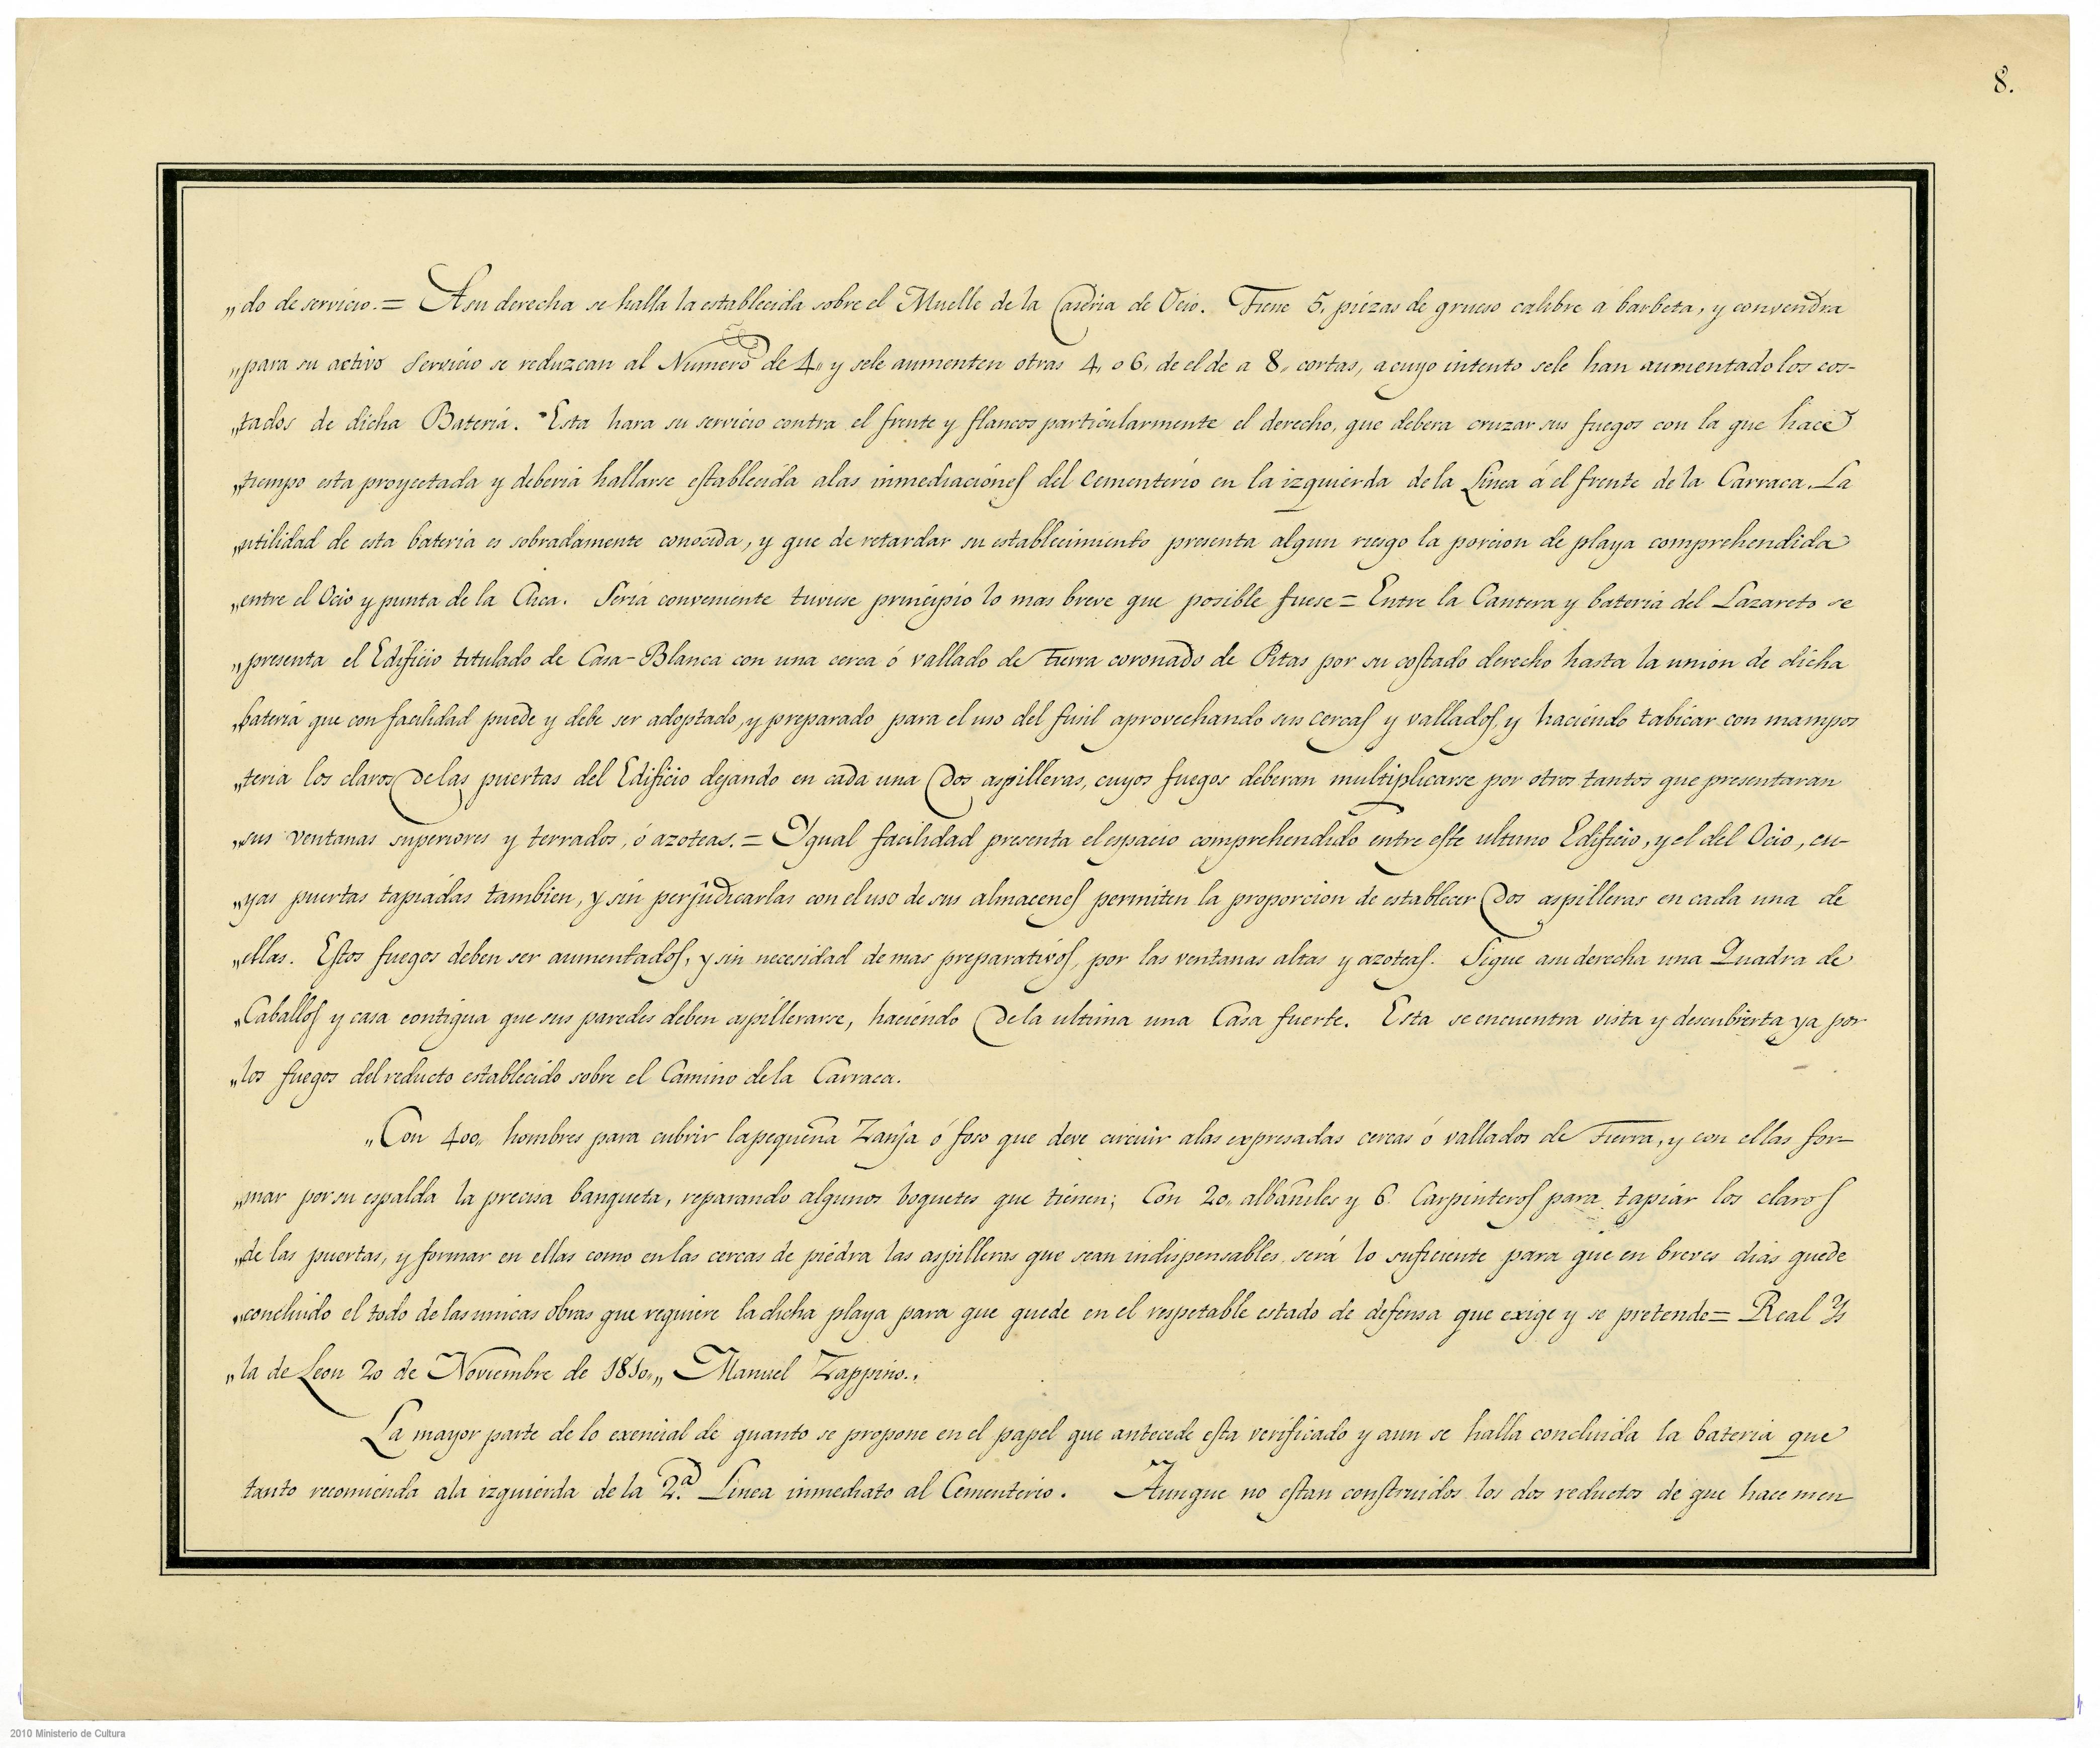 8.
„do de servicio.= A su derecha se halla la establecida sobre el Muelle de la Caseria de Ocio. Tiene 5, piezas de grueso calibre á barbeta, y convendra
„para su activo Servicio se reduzcan al Numero de 4„ y sele aumenten otras 4, o 6, de el de a 8, cortas, a cuyo intento sele han aumentado los cos-
„tados de dicha Bateria. Esta hara su servicio contra el frente y flancos particularmente el derecho, que debera cruzar sus fuegos con la que hace
„tiempo esta proyectada y deberia hallarse establecida alas inmediaciónes del Cementerio en la izquierda de la Linea á el frente de la Carraca. La
„utilidad de esta bateria es sobradamente conocida, y que de retardar su establecimiento presenta algun riesgo la porcion de playa comprehendida
„entre el Ocio y punta de la Clica. Seria conveniente tuviese principio lo mas breve que posible fuese = Entre la Cantera y bateria del Lazareto se
„presenta el Edificio titulado de Casa-Blanca con una cerca ó vallado de tierra coronado de Pitas por su costado derecho hasta la union de dicha
„bateria que con facilidad puede y debe ser adoptado, y preparado para el uso del fusil aprovechando sus cercas y vallados, y haciendo tabicar con mampos
„teria los claros de las puertas del Edificio dejando en cada una dos aspilleras, cuyos fuegos deberan multiplicarse por otros tantos que presentaran
„sus ventanas superiores y terrados, ó azoteas. = Ygual facilidad presenta el espacio comprehendido entre este ultimo Edificio, y el del Ocio, cu-
„yas puertas tapiádas tambien, y sin perjudicarlas con el uso de sus almacenes permiten la proporcion de establecer dos aspilleras en cada una de
„ellas. Estos fuegos deben ser aumentados, y sin necesidad de mas preparativos, por las ventanas altas y azoteas. Sigue asu derecha una Quadra de
„Caballos y casa contigua que sus paredes deben aspillerarse, haciendo de la ultima una Casa fuerte. Esta se encuentra vista y descubierta ya por
„los fuegos del reducto establecido sobre el Camino de la Carraca.
„Con 400„ hombres para cubrir la pequeña Zanja ó foso que deve circuir alas expresadas cercas ó vallados de tierra, y con ellas for-
„mar por su espalda la precisa banqueta, reparando algunos boquetes que tienen; Con 20„ albañiles y 6 Carpinteros para tapiar los claros
„de las puertas, y formar en ellas como en las cercas de piedra las aspilleras que sean indispensables, será lo suficiente para que en breves dias quede
„concluido el todo de las unicas obras que requiere la dicha playa para que quede en el respetable estado de defensa que exige y se pretende = Real Ys
„la de Leon 20 de Noviembre de 1810„„ Manuel Zappino.,
La mayor parte de lo exencial de quanto se propone en el papel que antecede esta verificado y aun se halla concluida la bateria que
tanto recomienda ala izquierda de la 2.ª Linea inmediato al Cementerio. Aunque no estan construidos los dos reductos de que hace men
2010 Ministerio de Cultura